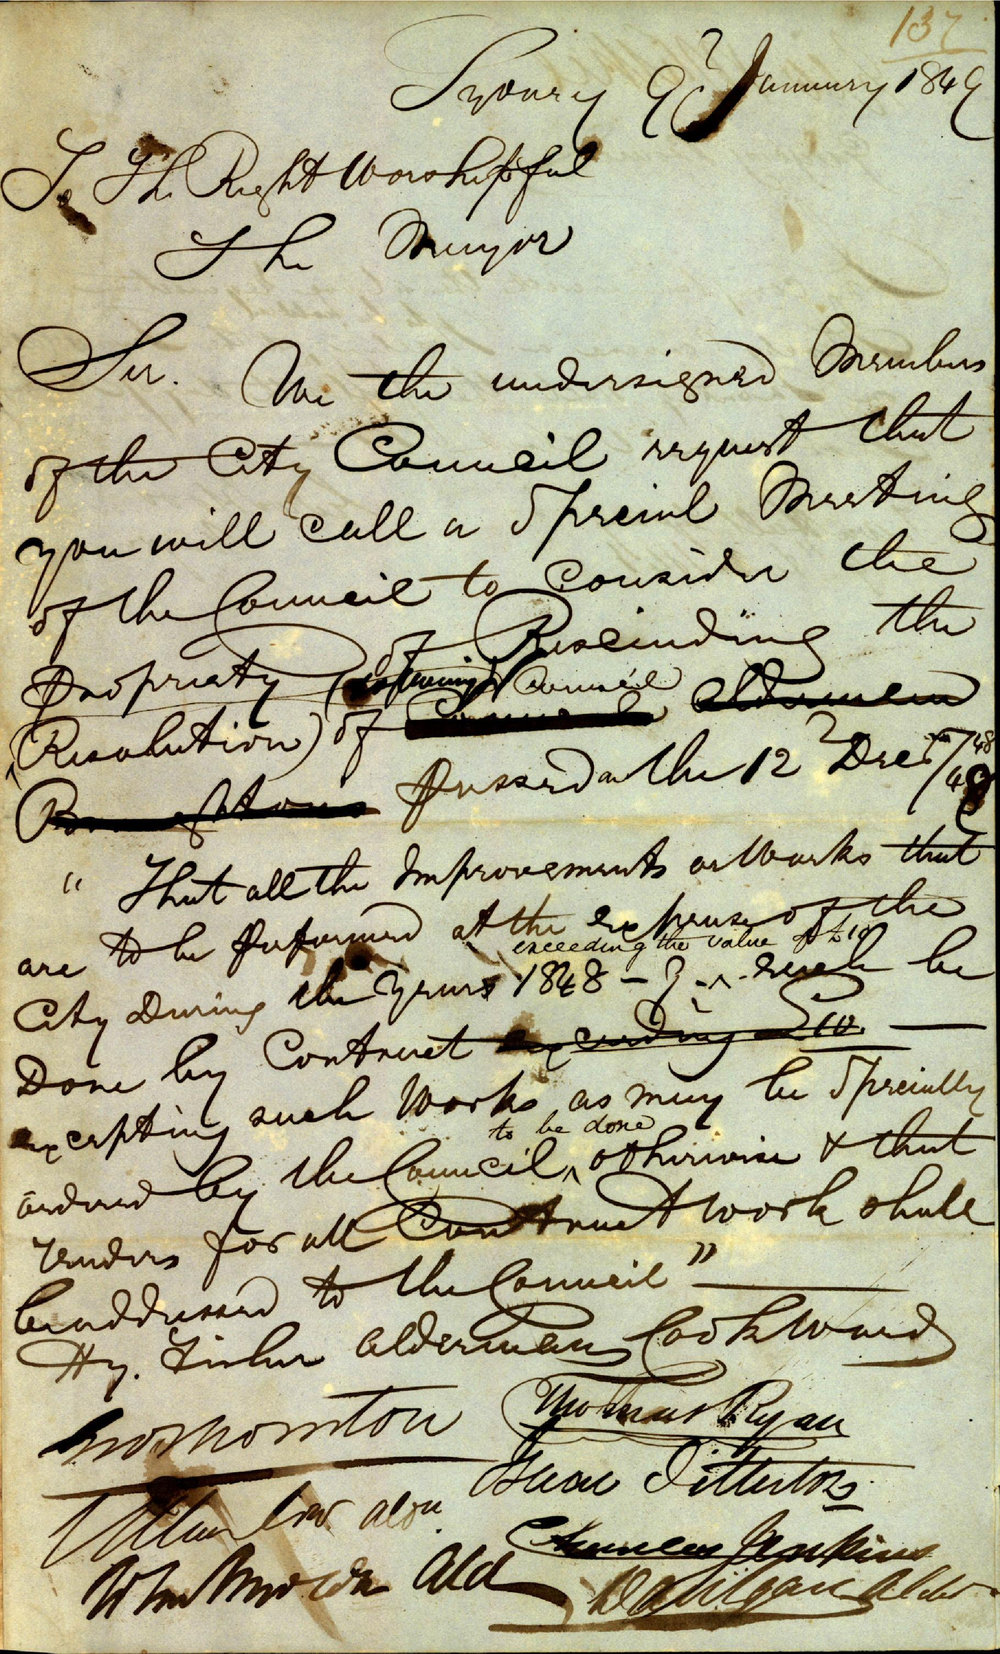 137
Sydney 9th January 1849
To The Right Worshipful
The Mayor
Sir. We the undersigned Members
of the City Council request that
you will call a Special Meeting
of the Council to Consider the
propriety of Rescinding the
Council aldermen
(Resolution) of
passed on the 12th Decr /48
"That all the Improvements or Works that
are to be performed at the expense of the
exceeding the value of £10
City During the Years 1848-9 - shall be
Done by Contract exceeding £10
excepting such Works as may be Specially
to be done
ordered by the Council otherwise & that
Tenders for all Contract work shall
be addressed to the Council"
Hy. Fisher Alderman Cook Ward
Geo Thornton
Thomas Ryan
Isaac Titterton
Ald
Charles Jenkins